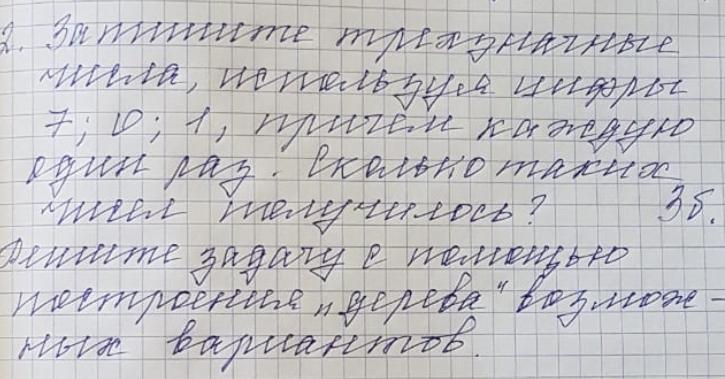 2. Запишите трехзначные
числа, используя цифры
7; 0; 1, причем каждую
один раз. Сколько таких
чисел получилось? 3б.
Решите задачу с помощью
построения „дерева" возмож-
ных вариантов.